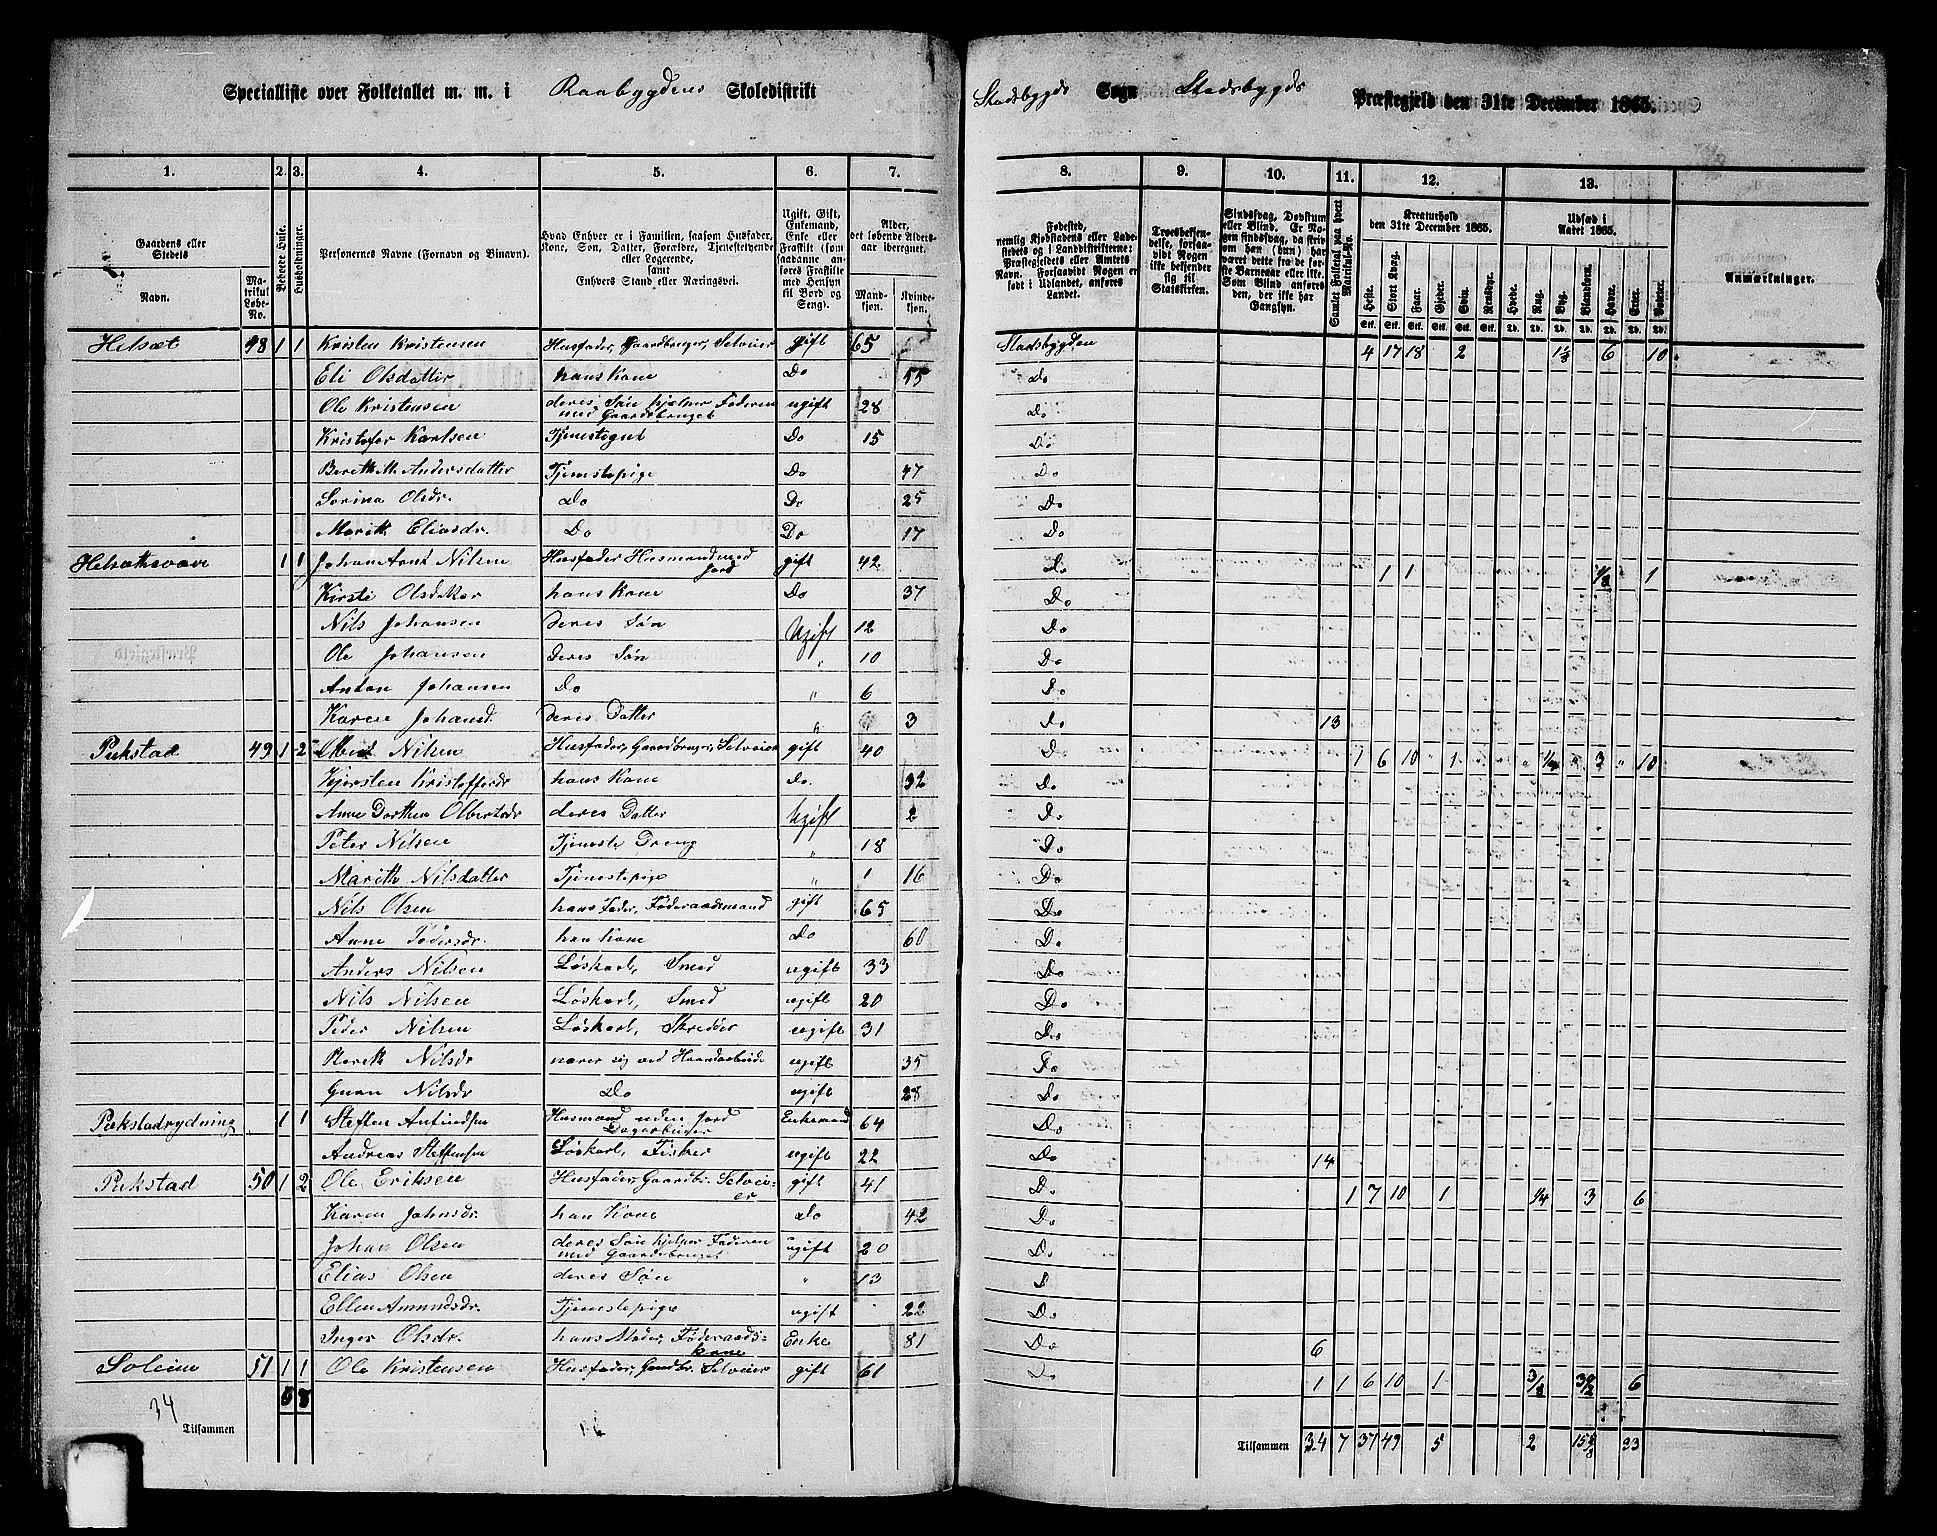 Specialliste over Folketallet m. m. i Raabygdens Skoledistrikt
Stadsbygds Sogn Stadsbygds Præstegjeld den 31te December 1865.
1. 2. 3. 4. 5. 6. 7. 8. 9. 10. 11. 12. 13.
Gaardens eller Stedets
Navn.
Matrikul Løbe-No.
Beboede Huse.
Husholdninger.
Personernes Navne (Fornavn og Binavn).
Hvad Enhver er i Familien, saasom Husfader, Kone, Søn, Datter, Forældre, Tjenestetyende eller Logerende, samt Enhvers Stand eller Næringsvei.
Ugift, Gift, Enkemand, Enke eller Fraskilt (som saadanne anføres Fraskilte med Hensyn til Bord og Seng).
Alder, det løbende Alders-aar iberegnet.
Mandkjøn. Kvindekjøn.
Fødested, nemlig Kjøbstadens eller Ladestedets og i Landdistrikterne: Præstegjeldets eller Amtets Navn. Forsaavidt Nogen er født i Udlandet, anføres Landet.
Troesbekjendelse, forsaavidt Nogen ikke bekjender sig til Statskirken.
Sindssvag, Døvstum eller Blind. Er Nogen sindssvag, da skrives om han (hun) har været dette før det fyldte Barneaar eller ikke. Som Blind anføres den, der ikke har Gangsyn.
Samlet Folketal paa hvert Matrikul-No.
Kreaturhold den 31te December 1865.
Heste. Stort Kvæg. Faar. Gjeder. Svin. Rensdyr.
Udsæd i Aaret 1865.
Hvede. Rug. Byg. Blandkorn. Havre. Erter. Poteter.
Anmærkninger.
Helsæt 48 1 1 Kristen Kristensen Husfader, Gaardbruger, Selveier gift 65 Stadsbygden 4 17 18 2 6 10
Eli Olsdatter hans Kone Do 55 Do
Ole Kristensen deres Søn hjelper Faderen med Gaardsbruget ugift 28 Do
Kristofer Karlsen Tjenestegut Do 15 Do
Bereth M. Andersdatter Tjenestepige Do 47 Do
Serina Olsdr. Do Do 25 Do
Marith Eliasdr. Do Do 17 Do
1 1 Johan Arnt Nilsen Husfader Husmand med Jord gift 42 Do 1 1 1
Kirsti Olsdatter hans Kone Do 37 Do
Nils Johansen deres Søn Ugift 12 Do
Ole Johansen deres Søn " 10 Do
Anton Johansen Do " 6 Do
Karen Johansd. deres Datter " 3 Do 13
Pukstad 49 1 2 Nilsen Husfader, Gaardbruger, Selveier gift 40 Do 1 6 10 1 3 10
Kjersten Kristoffersdr hans Kone Do. 32 Do
Anne Dorthea Olbertsdr deres Datter Ugift 2 Do
Peter Nilsen Tjeneste Dreng " 18 Do
Marith Nilsdatter Tjenestepige " 16 Do
Nils Olsen hans Fader, Føderaadsmand gift 65 Do
Anne Pedersdr. han Kone Do 60 Do
Anders Nilsen Løskarl, Smed ugift 33 Do
Nils Nilsen Løskarl, Smed ugift 20 Do
Peder Nilsen Løskarl, Skredder ugift 31 Do
Bereth Nilsdr nærer sig ved Haandarbeide ugift 35 Do
Guru Nilsdr Do ugift 28 Do
Pukstadrydning 1 1 Steffen Husmand uden Jord Dagarbeider Enkemand 64 Do
Andreas Steffensen Løskarl, Fisker ugift 22 Do 14
Pukstad 50 1 2 Ole Eriksen Husfader, Gaardbr. Selveier gift 41 Do 1 7 10 1 1/4 3 6
Karen Johnsdr. han Kone Do 42 Do
Johan Olsen deres Søn hjelper Faderen med Gaardsbruget ugift 20 Do
Elias Olsen deres Søn " 13 Do
Ellen Amundsdr. Tjenestepige ugift 22 Do
Inger Olsdr. hans Moder, Føderaadskone Enke 81 Do 6
Soleim 51 1 1 Ole Kristensen Husfader, Gaardbr. Selveier gift 61 Do 1 1 6 10 1 6
6 8
34
Tilsammen
Tilsammen 34 7 37 49 5 2 33